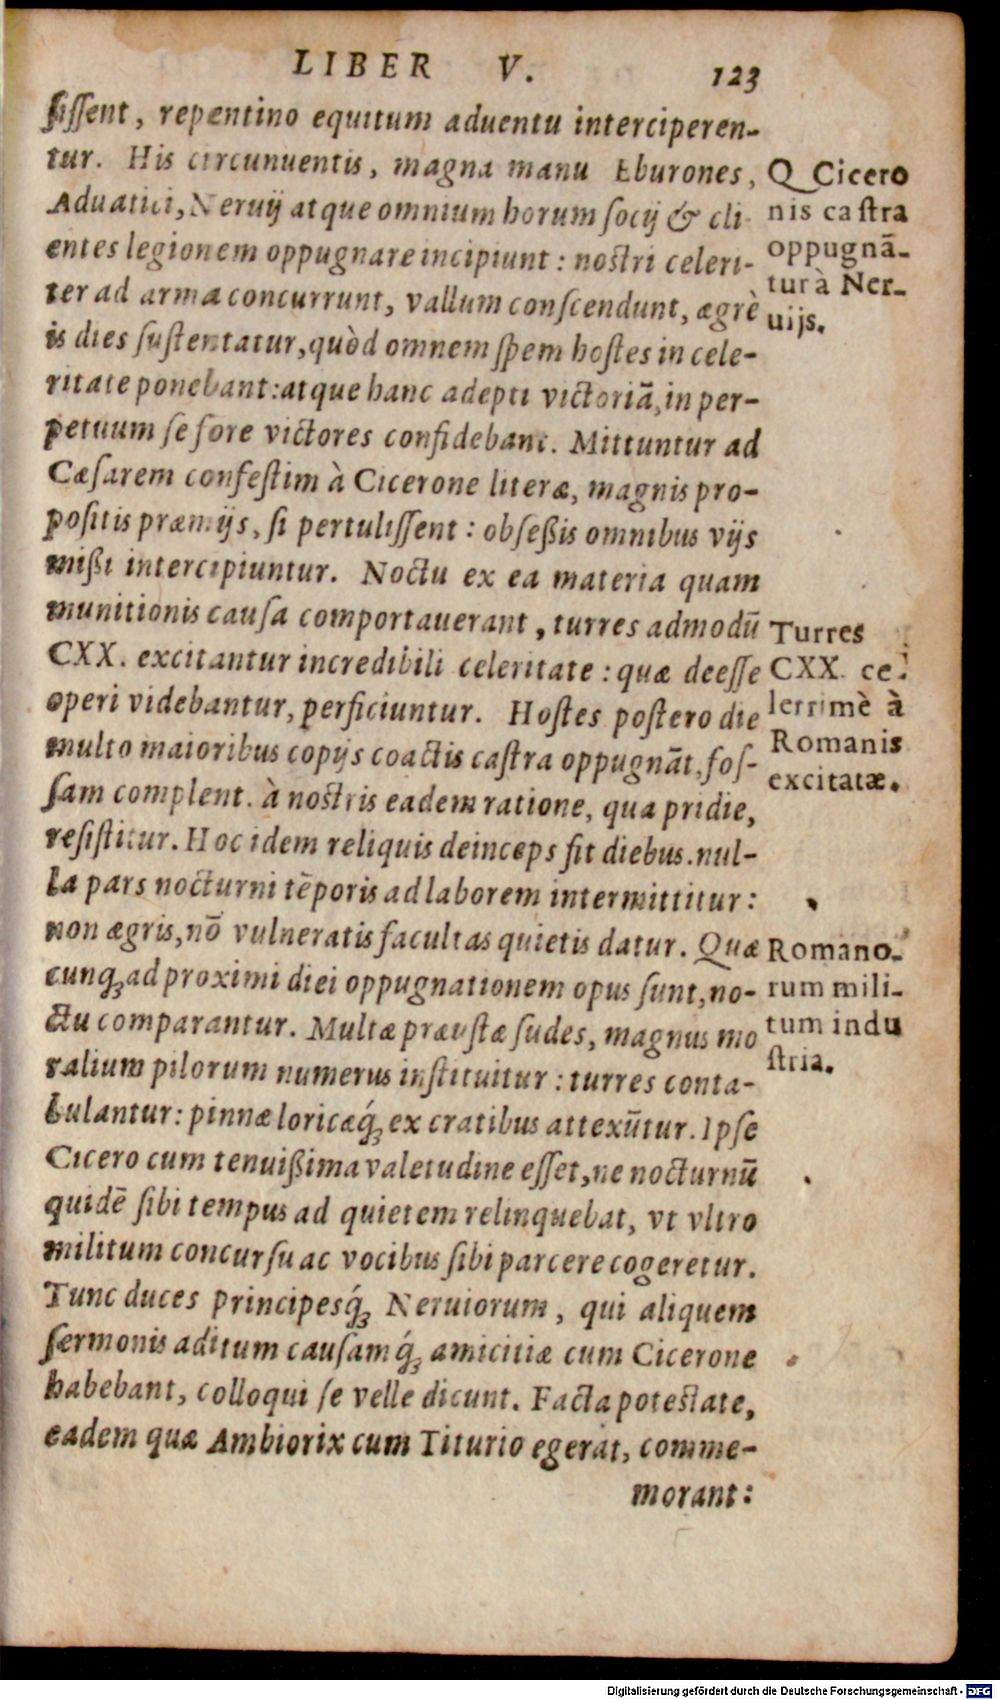 LIBER V. 123
ſiſſent, repentino equitum aduentu interciperen-
tur. His circunuentis, magna manu Eburones,
Aduatici, Neruij atque omnium horum ſocij & cli
entes legionem oppugnare incipiunt: noſtri celeri-
ter ad arma concurrunt, vallum conſcendunt, ægrè
is dies ſuſtentatur, quòd omnem ſpem hoſtes in cele-
ritate ponebant: atque hanc adepti victoriā, in per-
petuum ſe fore victores confidebant. Mittuntur ad
Cæſarem confeſtim à Cicerone literæ, magnis pro-
poſitis præmijs, ſi pertuliſſent: obſeßis omnibus vijs
mißi intercipiuntur. Noctu ex ea materia quam
munitionis cauſa comportauerant, turres admodū
CXX. excitantur incredibili celeritate: quæ deeſſe
operi videbantur, perficiuntur. Hoſtes poſtero die
multo maioribus copijs coactis caſtra oppugnāt, foſ-
ſam complent. à noſtris eadem ratione, qua pridie,
reſiſtitur. Hoc idem reliquis deinceps fit diebus. nul-
la pars nocturni tēporis ad laborem intermittitur:
non ægris, nō vulneratis facultas quietis datur. Quæ
cunqꝫ ad proximi diei oppugnationem opus ſunt, no-
ctu comparantur. Multæ præuſtæ ſudes, magnus mo
ralium pilorum numerus inſtituitur: turres conta-
bulantur: pinnæ loricæq́ꝫ ex cratibus attexūtur. Ipſe
Cicero cum tenuißima valetudine eſſet, ne nocturnū
quidē ſibi tempus ad quietem relinquebat, vt vltro
militum concurſu ac vocibus ſibi parcere cogeretur.
Tunc duces principesq́ꝫ Neruiorum, qui aliquem
ſermonis aditum cauſamq́ꝫ amicitiæ cum Cicerone
habebant, colloqui ſe velle dicunt. Facta poteſtate,
eadem quæ Ambiorix cum Titurio egerat, comme-
morant:
Q Cicero
nis caſtra
oppugnā-
tur à Ner-
uijs.
Turres
CXX. ce-
lerrimè à
Romanis
excitatæ.
Romano-
rum mili-
tum indu
ſtria.
Digitalisierung gefördert durch die Deutsche Forschungsgemeinschaft - DFG